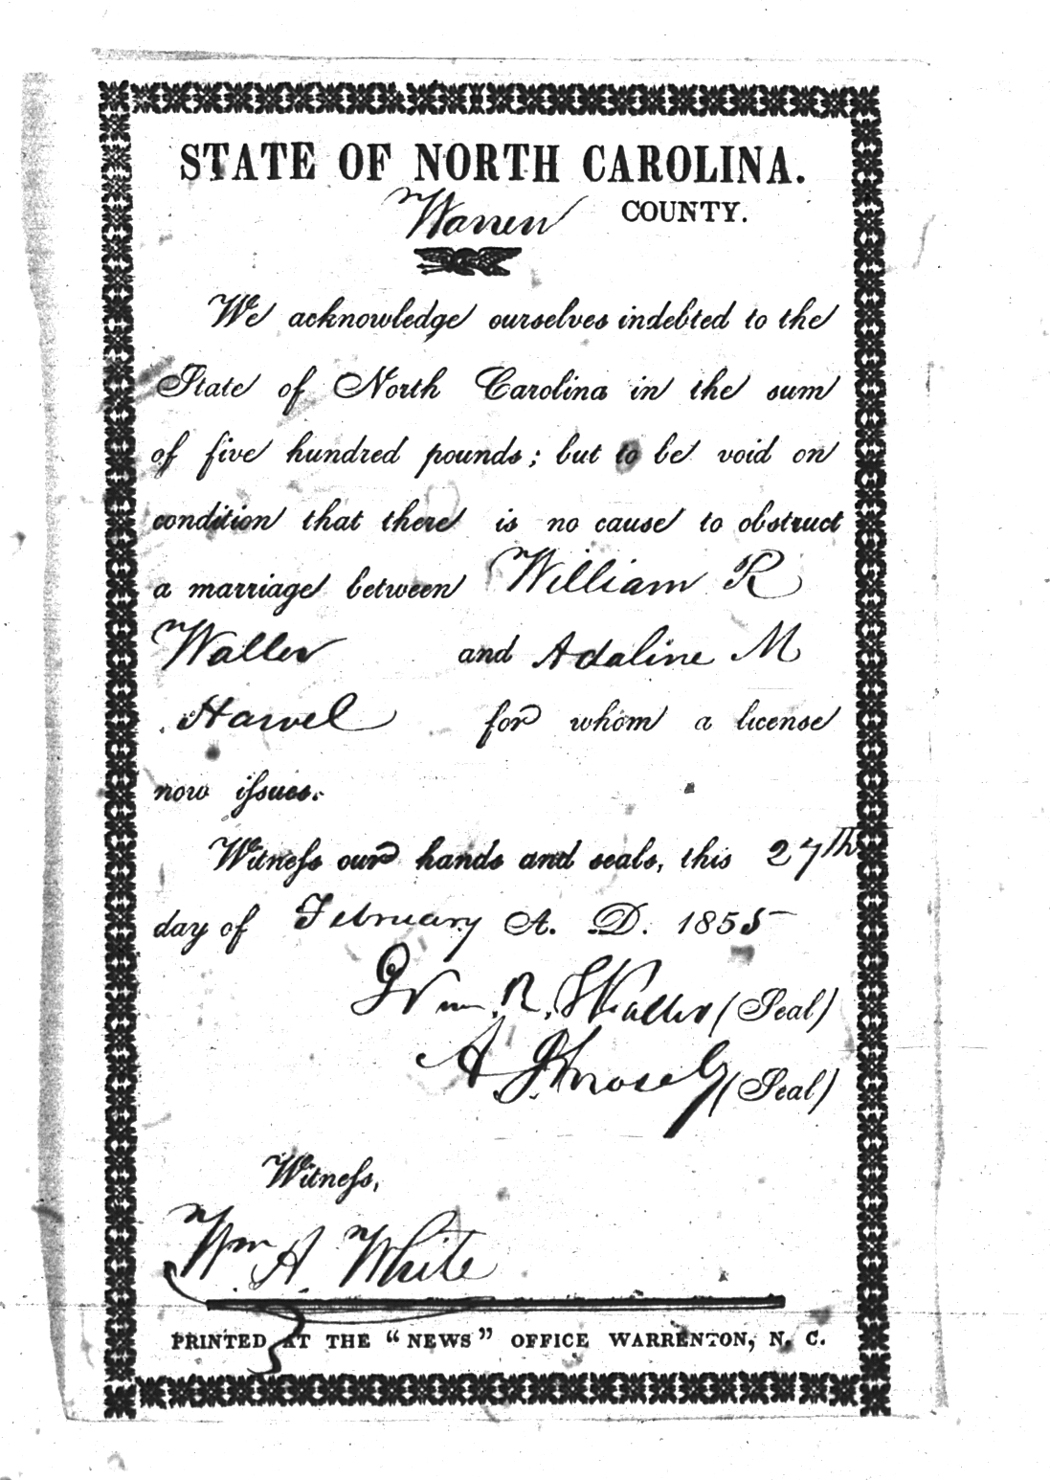 STATE OF NORTH CAROLINA.
Warren COUNTY.
We acknowledge ourselves indebted to the
State of North Carolina in the sum
of five hundred pounds; but to be void on
condition that there is no cause to obstruct
a marriage between William R
Waller and Adaline M
Harvel for whom a license
now issues.
Witness our hands and seals, this 27th
day of February A. D. 1855
Wm. R. Waller (Seal)
A (Seal)
Witness,
Wm A. White
PRINTED AT THE "NEWS" OFFICE WARRENTON, N. C.